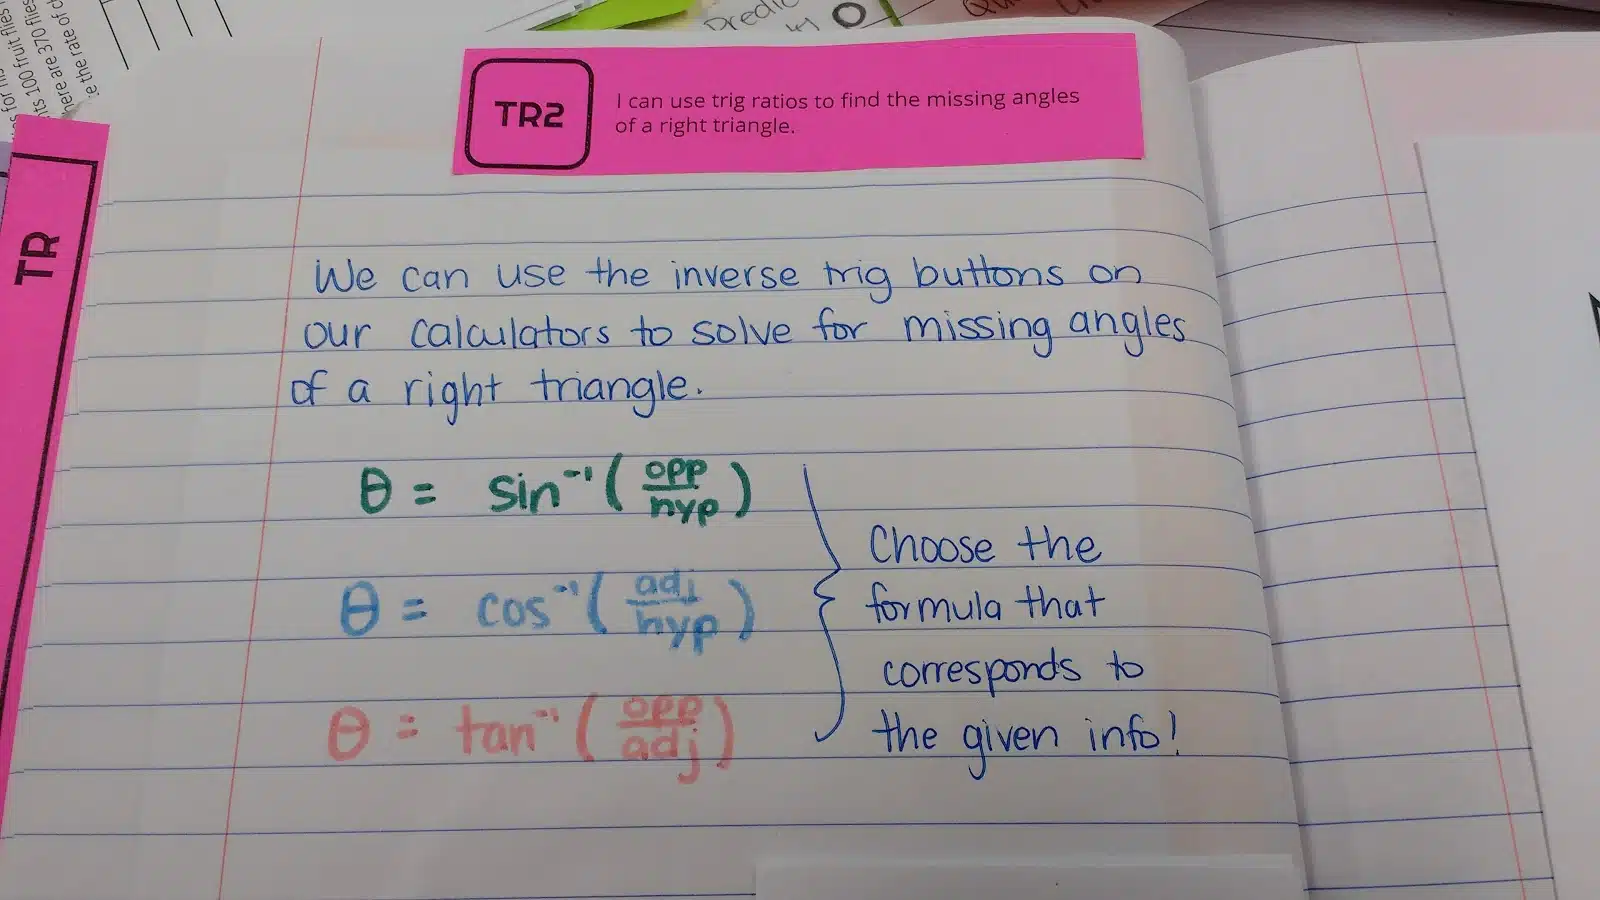 s for his
nts 100 fruit flies
here are 370 flies
e the rate of ch
Predic
TR
TR2
I can use trig ratios to find the missing angles
of a right triangle.
We can use the inverse trig buttons on
our calculators to solve for missing angles
of a right triangle.
θ = sin⁻¹ (opp/hyp)
θ = cos⁻¹ (adj/hyp)
θ = tan⁻¹ (opp/adj)
Choose the
formula that
corresponds to
the given info!